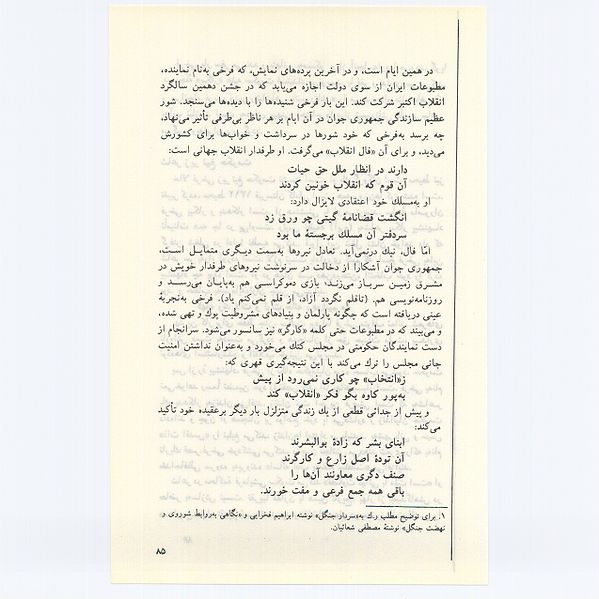 در همین ایام است، و در آخرین پرده‌های نمایش، که فرخی به‌نام نماینده،
مطبوعات ایران از سوی دولت اجازه می‌یابد که در جشن دهمین سالگرد
انقلاب اکتبر شرکت کند. این بار فرخی شنیده‌ها را با دیده‌ها می‌سنجد. شور
عظیم سازندگی جمهوری جوان در آن ایام بر هر ناظر بی‌طرفی تأثیر می‌نهاد،
چه برسد به‌فرخی که خود شورها در سرداشت و خواب‌ها برای کشورش
می‌دید، و برای آن «فال انقلاب» می‌گرفت. او طرفدار انقلاب جهانی است:
دارند در انظار ملل حق حیات
آن قوم که انقلاب خونین کردند
او به‌مسلك خود اعتقادی لایزال دارد:
انگشت قضانامهٔ گیتی چو ورق زد
سردفتر آن مسلك برجستهٔ ما بود
امّا فال، نیك درنمی‌آید. تعادل نیروها به‌سمت دیگری متمایل است،
جمهوری جوان آشکارا از دخالت در سرنوشت نیروهای طرفدار خویش در
مشرق زمین سرباز می‌زند،۱ بازی دموکراسی هم به‌پایان می‌رسد و
روزنامه‌نویسی هم. (تاقلم نگردد آزاد، از قلم نمی‌کنم یاد). فرخی به‌تجربهٔ
عینی دریافته است که چگونه پارلمان و بنیادهای مشروطیت پوك و تهی شده،
و می‌بیند که در مطبوعات حتی کلمه «کارگر» نیز سانسور می‌شود. سرانجام از
دست نمایندگان حکومتی در مجلس کتك می‌خورد و به‌عنوان نداشتن امنیت
جانی مجلس را ترك می‌کند با این نتیجه‌گیری قهری که:
ز«انتخاب» چو کاری نمی‌رود از پیش
به‌پور کاوه بگو فکر «انقلاب» کند
و پیش از جدائی قطعی از یك زندگی متزلزل بار دیگر برعقیده خود تأکید
می‌کند:
ابنای بشر که زادهٔ بوالبشرند
آن تودهٔ اصل زارع و کارگرند
صنف دگری معاونند آن‌ها را
باقی همه جمع فرعی و مفت خورند.
۱. برای توضیح مطلب ر.ك به«سردار جنگل» نوشته ابراهیم فخرایی و «نگاهی به‌روابط شوروی و
نهضت جنگل» نوشتهٔ مصطفی شعائیان.
۸۵